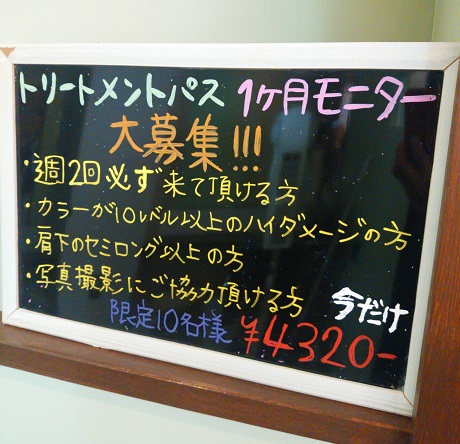 トリートメントパス 1ヶ月モニター
大募集!!!
・週2回必ず来て頂ける方
・カラーが10レベル以上のハイダメージの方
・肩下のセミロング以上の方
・写真撮影にご協力頂ける方
今だけ
限定10名様 ¥4320-